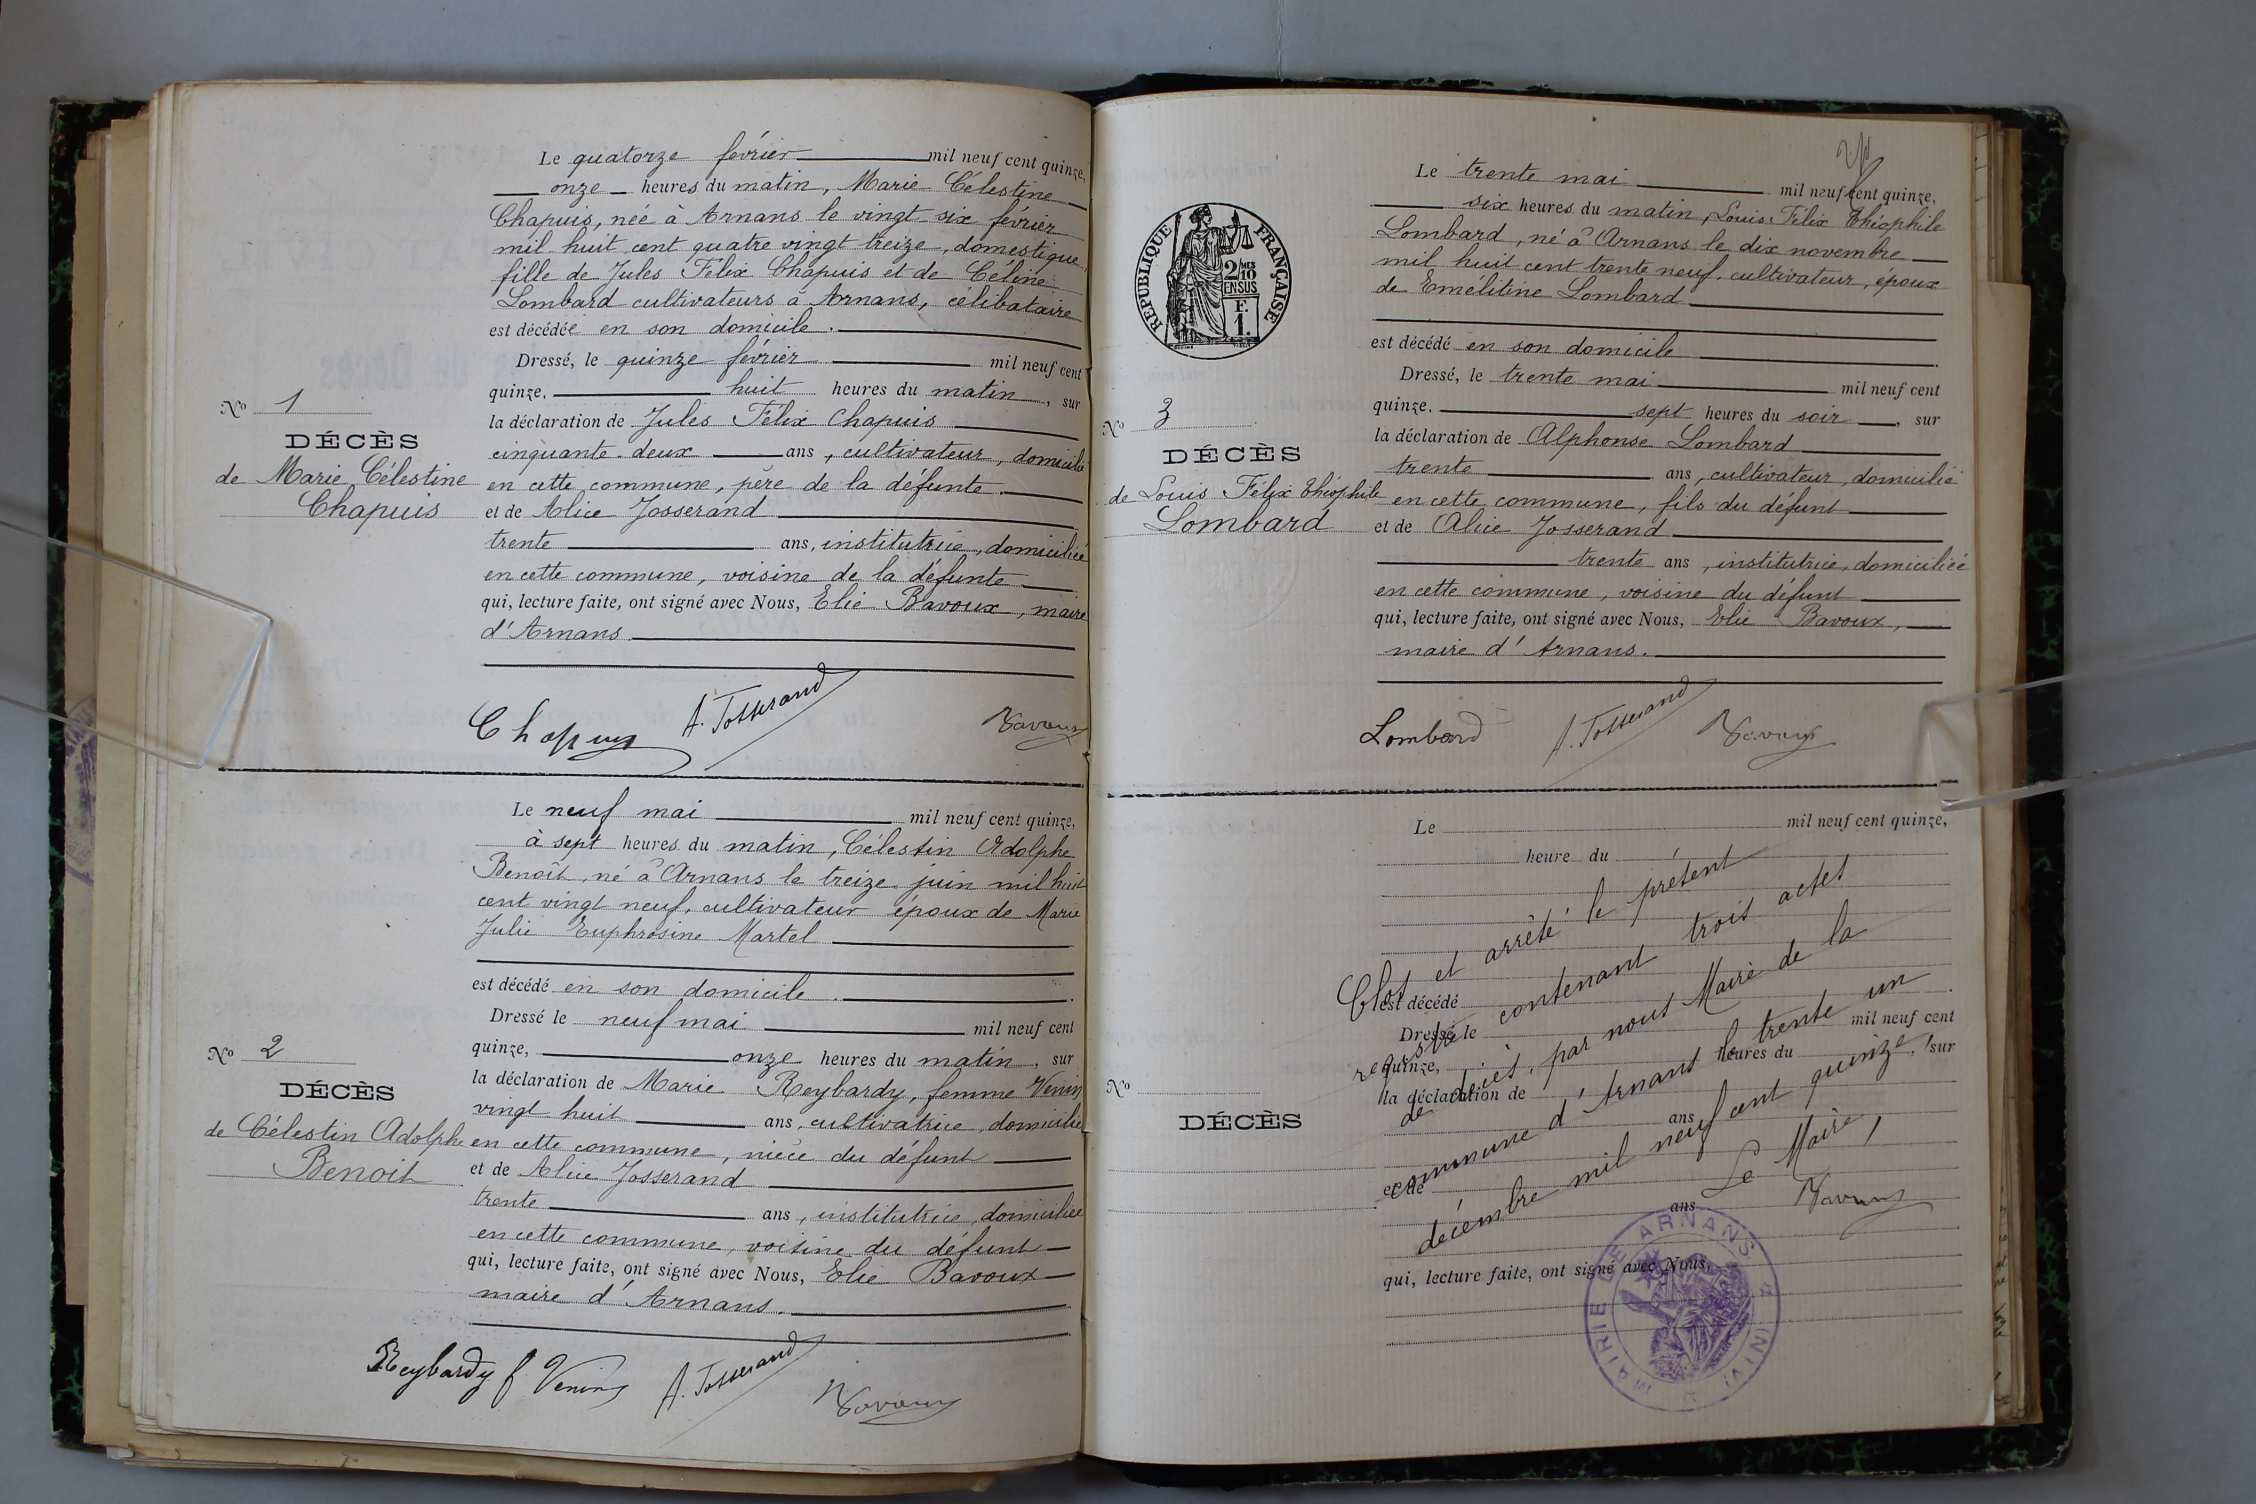 Le quatorze février mil neuf cent quinze,
onze heures du matin, Marie Célestine
Chapuis, née à Arnans le vingt-six février
mil huit cent quatre vingt treize, domestique
fille de Jules Félix Chapuis et de Céline
Lombard cultivateurs à Arnans, célibataire
est décédée en son domicile.
Dressé, le quinze février mil neuf cent
quinze, huit heures du matin, sur
la déclaration de Jules Félix Chapuis
cinquante-deux ans, cultivateur, domicilié
en cette commune, père de la défunte.
et de Alice Josserand
trente ans, institutrice, domiciliée
en cette commune, voisine de la défunte
qui, lecture faite, ont signé avec Nous, Elie Bavoux, maire
d'Arnans.
Chapuis A. Josserand Bavoux
No 1
DÉCÈS
de Marie Célestine
Chapuis
Le neuf mai mil neuf cent quinze,
à sept heures du matin, Célestin Adolphe
Benoît, né à Arnans le treize juin mil huit
cent vingt neuf, cultivateur époux de Marie
Julie Euphrosine Martel
est décédé en son domicile.
Dressé le neuf mai mil neuf cent
quinze, onze heures du matin, sur
la déclaration de Marie Reybardy, femme Venin
vingt huit ans, cultivatrice, domiciliée
en cette commune, nièce du défunt
et de Alice Josserand
trente ans, institutrice, domiciliée
en cette commune, voisine du défunt
qui, lecture faite, ont signé avec Nous, Elie Bavoux
maire d'Arnans.
Reybardy f. Venin A. Josserand Bavoux
No 2
DÉCÈS
de Célestin Adolphe
Benoit
Le trente mai mil neuf cent quinze,
six heures du matin, Louis Félix Théophile
Lombard, né à Arnans le dix novembre
mil huit cent trente neuf, cultivateur, époux
de Emélitine Lombard
est décédé en son domicile
Dressé, le trente mai mil neuf cent
quinze, sept heures du soir, sur
la déclaration de Alphonse Lombard
trente ans, cultivateur, domicilié
en cette commune, fils du défunt
et de Alice Josserand
trente ans, institutrice, domiciliée
en cette commune, voisine du défunt
qui, lecture faite, ont signé avec Nous, Elie Bavoux,
maire d'Arnans.
Lombard A. Josserand Bavoux
RÉPUBLIQUE FRANÇAISE
2/10 MES
EN SUS
F.
1.
No 3
DÉCÈS
de Louis Félix Théophile
Lombard
Le mil neuf cent quinze,
heure du
est décédé
Dressé le mil neuf cent
quinze, heures du , sur
la déclaration de
ans
et de
ans
qui, lecture faite, ont signé avec Nous,
No
DÉCÈS
Clos et arrêté le présent
registre contenant trois actes
de décès, par nous Maire de la
commune d'Arnans le trente un
décembre mil neuf cent quinze.
Le Maire,
Bavoux
MAIRIE DE ARNANS (AIN)